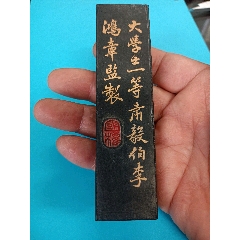 大學士一等肅毅伯李
鴻章監製